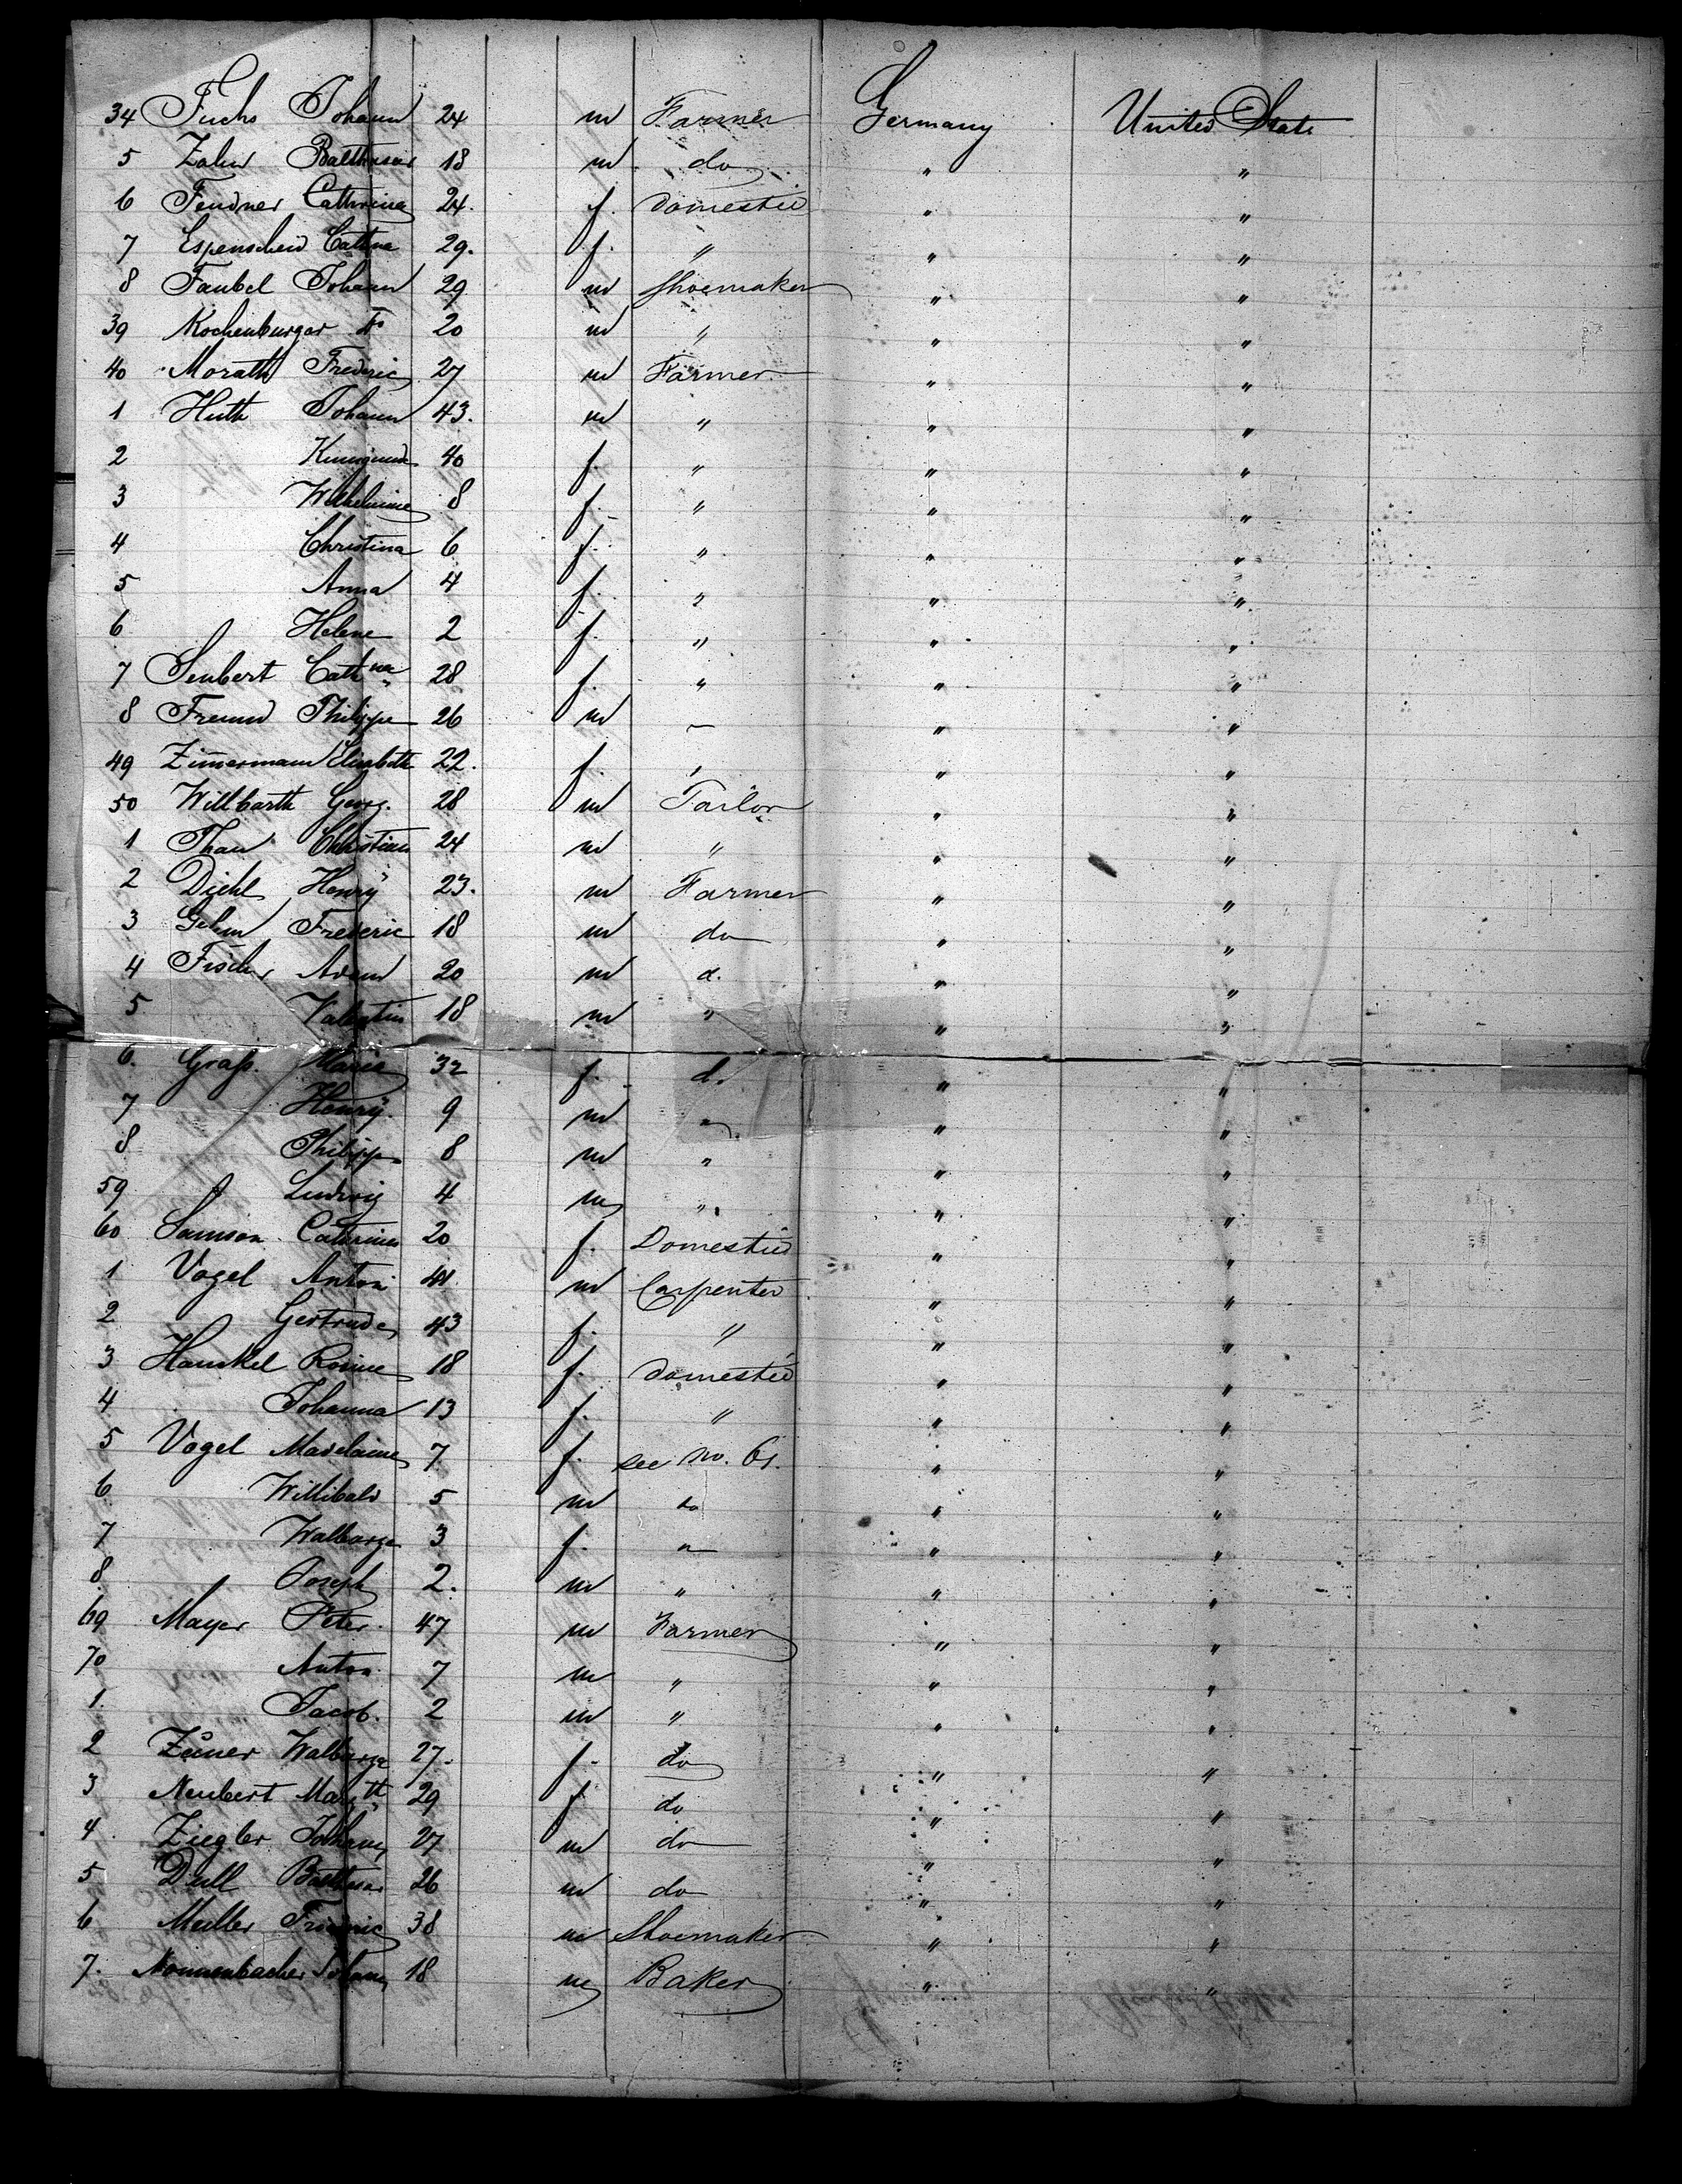 34 Fuchs Johann 24 m Farmer Germany United State
5 Zahn Balthasar 18 m do " "
6 Feudner Cathrina 24. f. Domestic " "
7 Espenscheid Cathna 29. f. " " "
8 Faubel Johann 29 m Shoemaker " "
39 Kochenburger Fr 20 m " " "
40 Morath Frederic 27 m Farmer " "
1 Huth Johann 43. m " " "
2 Kunigunde 40 f. " " "
3 Wilhelmine 8 f. " " "
4 Christina 6 f. " " "
5 Anna 4 f. " " "
6 Helene 2 f. " " "
7 Seubert Cathna 28 f. " " "
8 Freund Philippe 26 m " " "
49 Zimmermann Elisabeth 22. f. " " "
50 Willbarth Georg. 28 m Tailor " "
1 Thau Christian 24 m " " "
2 Diehl Henry 23. m Farmer " "
3 Gehm Frederic 18 m do " "
4 Fischer Adam 20 m d. " "
5 Valentin 18 m " " "
6. Grass. Maria 32 f. do " "
7 Henry. 9 m " " "
8 Philipp 8 m " " "
59 Ludwig 4 m " " "
60 Samson Cathrina 20 f. Domestic " "
1 Vogel Anton 41 m Carpenter " "
2 Gertrude 43 f. " " "
3 Hauckel Rosine 18 f. Domestic " "
4 Johanna 13 f. " " "
5 Vogel Madelaine 7 f. see no. 61. " "
6 Willibald 5 m do " "
7 Walburga 3 f. " " "
8 Joseph 2. m " " "
69 Mayer Peter. 47 m Farmer " "
70 Anton. 7 m " " "
1. Jacob. 2 m " " "
2 Walburga 27. f. do " "
3 Neubert Margth 29 f. do " "
4. Ziegler Johann 27 m do " "
5 Dull Balthasar 26 m do " "
6 Muller Frederic 38 m Shoemaker " "
7. Nonnenbacher Johann 18 m Baker " "